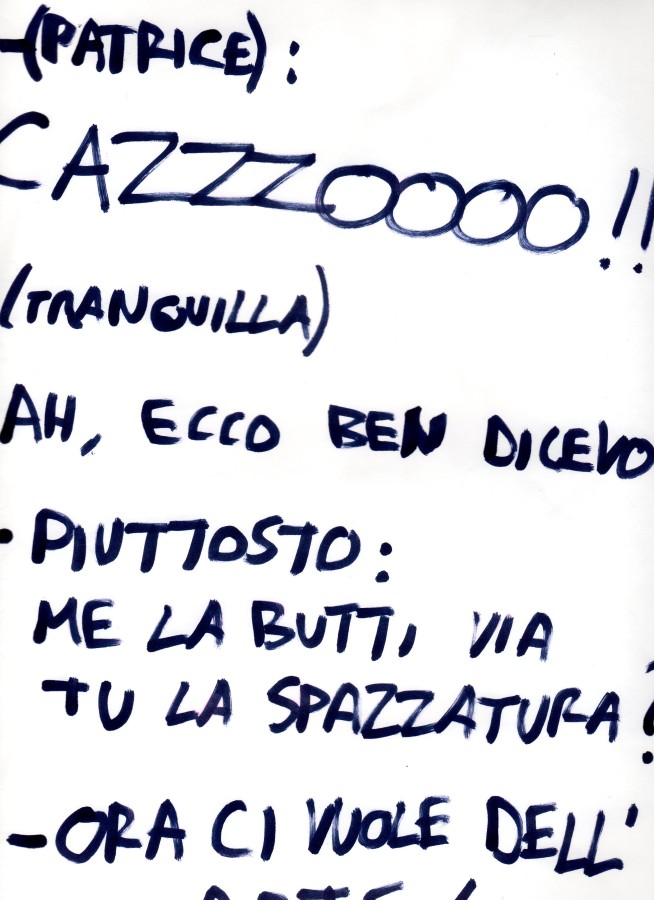 -(PATRICE):
CAZZZOOOO!!
(TRANQUILLA)
AH, ECCO BEN DICEVO
• PIUTTOSTO:
ME LA BUTTI VIA
TU LA SPAZZATURA?
-ORA CI VUOLE DELL'